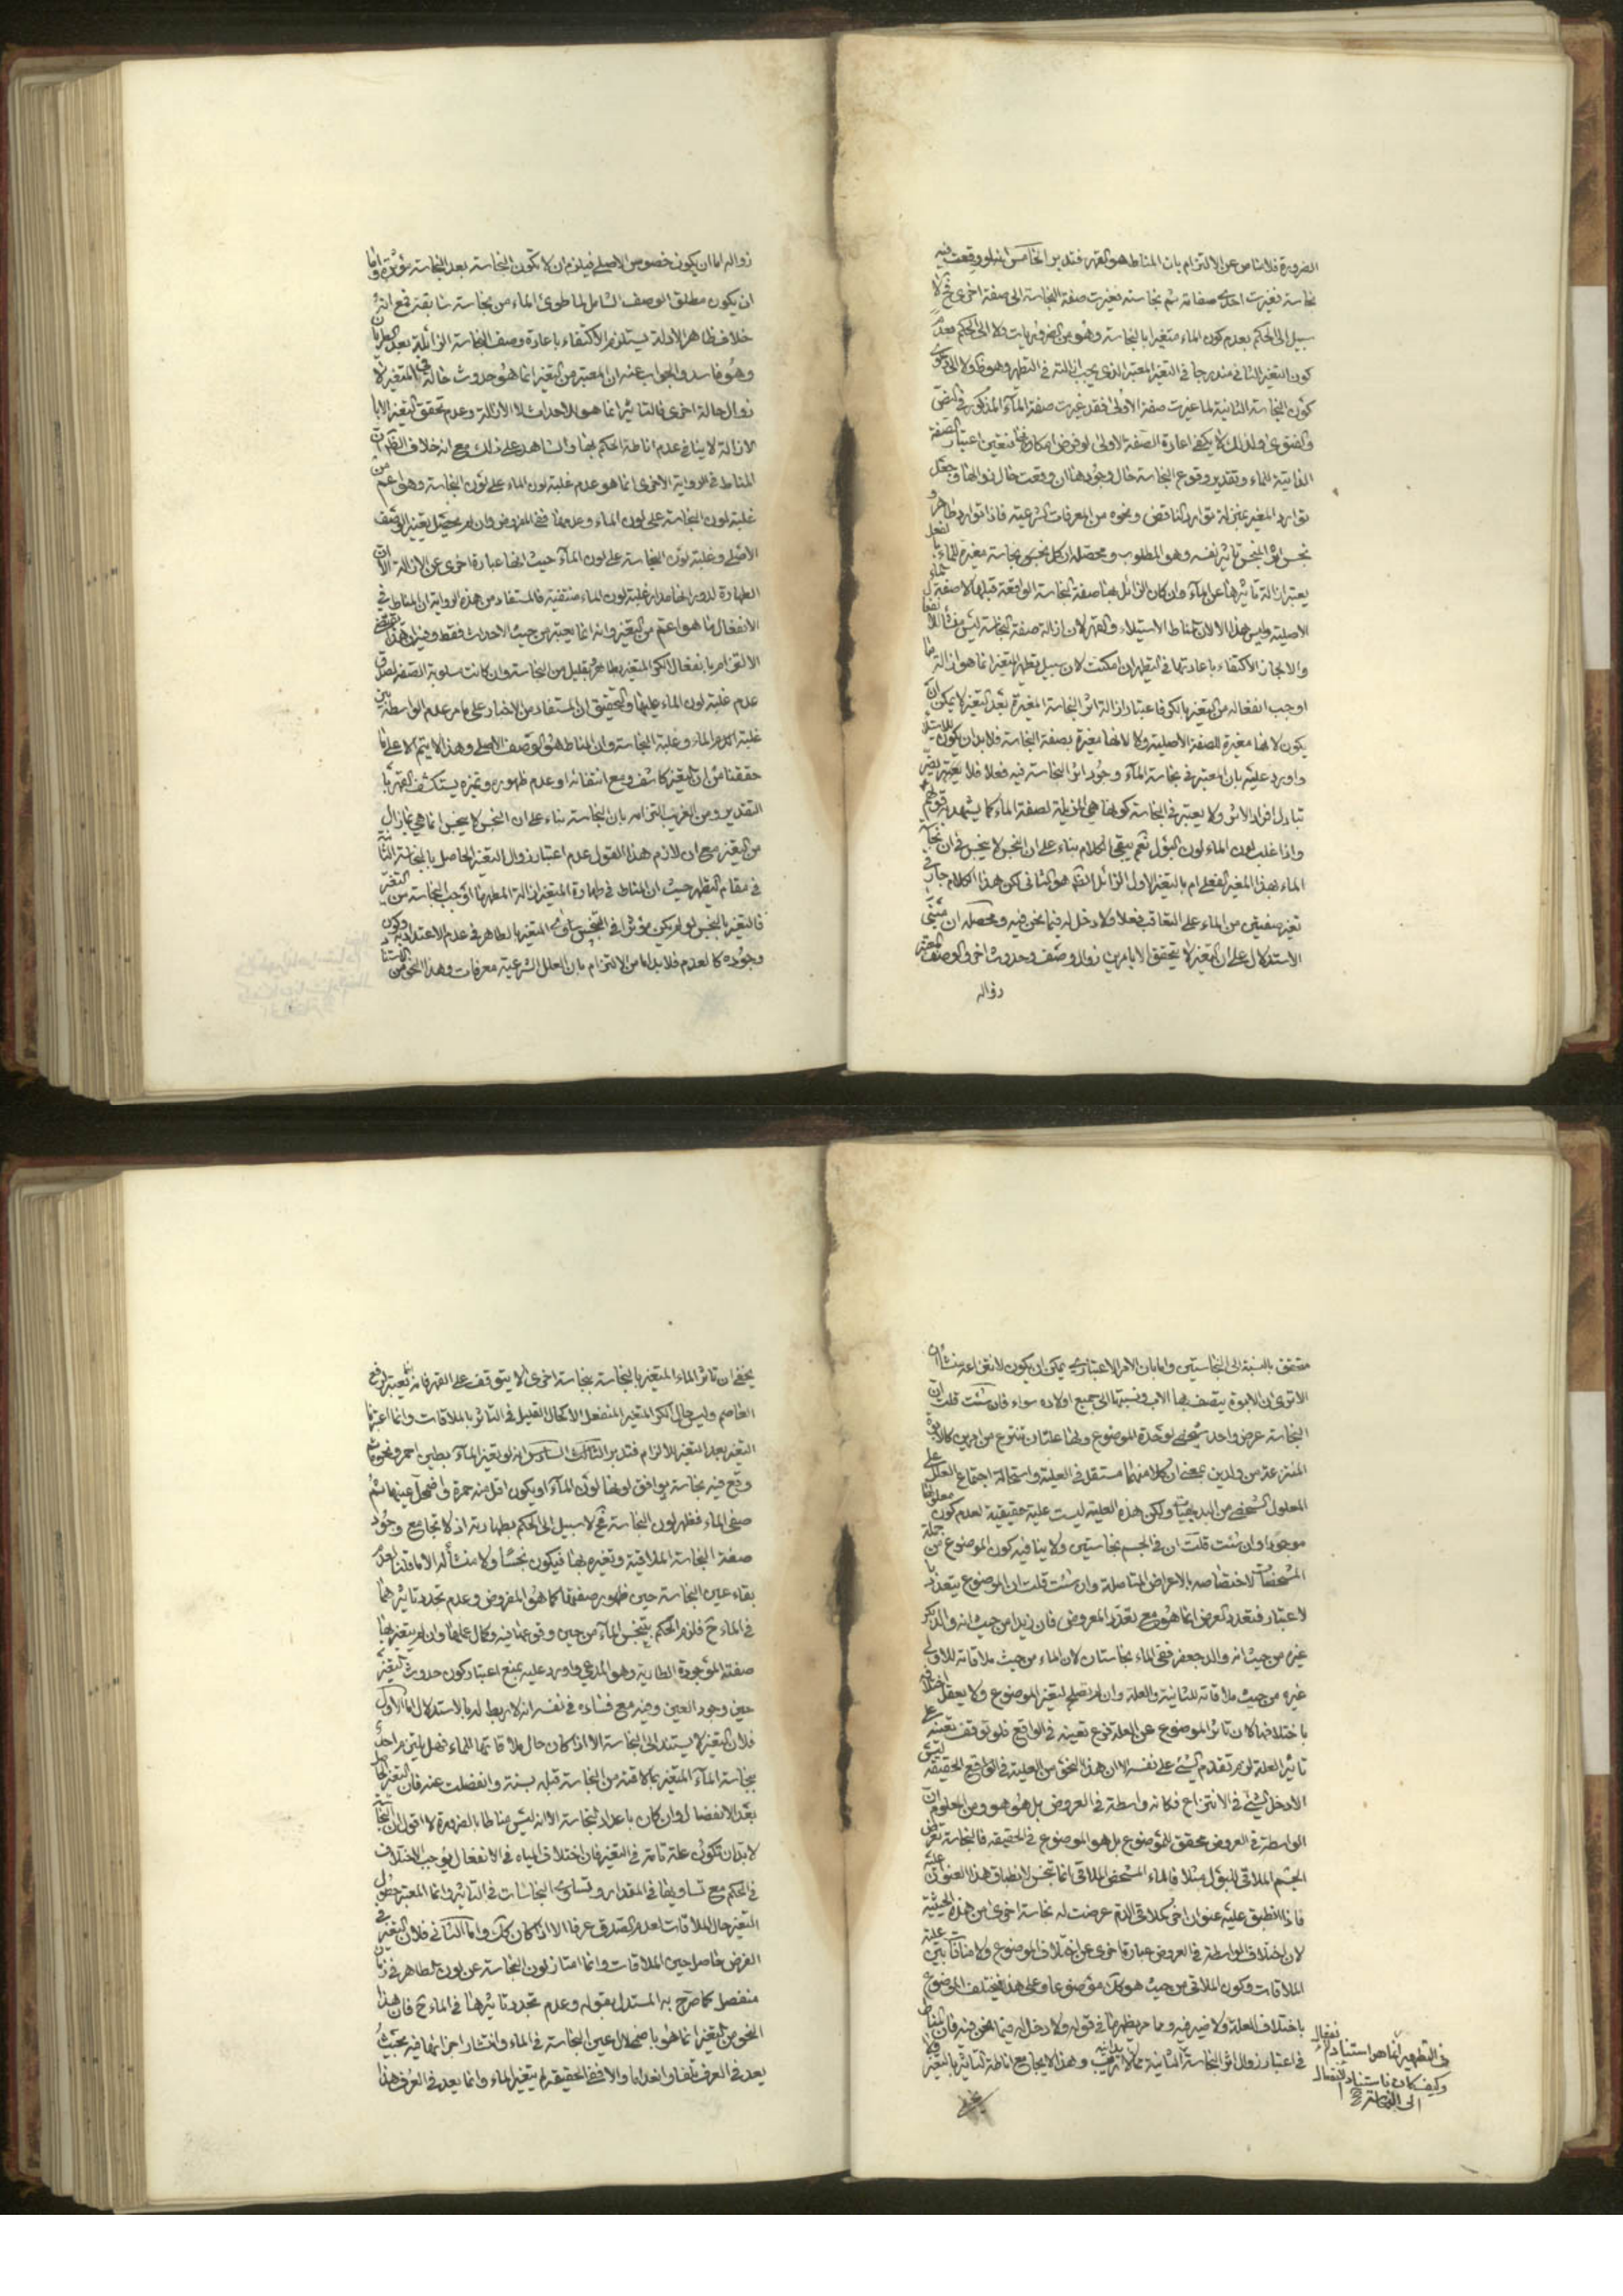 الضرورة فلا مناص عن الالتزام بان المناط هو القهر فتدبر الخامس انه لو وقعت فيه
نجاسة فغيرت احدى صفاته ثم نجاسة فغيرت صفة النجاسة الى صفة اخرى فح لا
سبيل الى الحكم بعدم كون الماء متغيرا بالنجاسة وهو من الضروريات ولا الى الحكم بعدم
كون التغير الثانى مندرجا فى التغير المعتبر الذى يجب ازالته فى التطهر وهو ظ ولا الى دعوى
كون النجاسة الثانية لما غيرت صفة الاولى فقد غيرت صفة الماء المذكور فى النص
والفتوى ولذلك لا يكفى اعادة الصفة الاولى لو فرض امكانها فتعين اعتبار الصفة
الذاتية للماء وتقدير وقوع النجاسة حال وجودها ان وقعت حال زوالها وجعل
توارد المغير بمنزلة توارد الناقض ونحوه من المعرفات الشرعية فاذا توارد طاهر او
نجس اثر النجس تاثير نفسه وهو المطلوب ومحصله ان كل نجس بنجاسة مغيرة للماء
يعتبر ازالة تاثيرها عن الماء وان كان الزائل بها صفة النجاسة الواقعة قبلها لا صفة الماء
الاصلية وليس هذا الا لان المناط الاستيلاء والقهر لان ازالة صفة النجاسة ليس منشأ للانفعال
والا لجاز الاكتفاء باعادتها فى التطهر ان امكنت لان سبيل تطهر المتغير انما هو ازالة ما
اوجب انفعاله من التغير بالكر فاعتبار ازالة اثر النجاسة المغيرة بعد التغير لا يمكن ان
يكون لانها مغيرة للصفة الاصلية ولا لانها مغيرة بصفة النجاسة فلا بد ان يكون للاستيلاء
واورد عليه بان المعتبر فى نجاسة الماء وجود اثر النجاسة فيه فعلا فلا يعتبر
تبادل افراد الاثر ولا يعتبر فى النجاسة كونها هى المزيلة لصفة الماء كما يشهد به قولهم
واذا غلب لون الماء لون البول نعم يبقى الكلام بناء على ان النجس لا ينجس فى ان نجاسة
الماء بهذا المغير الفعلى ام بالتغير الاول الزائل الظ هو الثانى لكن هذا الكلام جار فى
تغير صفتين من الماء على التعاقب فعلا ولا دخل له فيما نحن فيه ومحصله ان مبنى
الاستدلال على ان التغير لا يتحقق الا بامرين زوال وصف وحدوث اخر والوصف المعتبر
زواله
زواله اما ان يكون خصوص الاصلى فيلزم ان لا تكون النجاسة بعد النجاسة مؤثرة واما
ان يكون مطلق الوصف الشامل لما طرئ الماء من نجاسة سابقة فمع انه
خلاف ظاهر الادلة يستلزم الاكتفاء باعادة وصف النجاسة الزائلة بعد
وهو فاسد والجواب عنه ان المعتبر من التغير انما هو حدوث حالة فى المتغير لا
زوال حالة اخرى فالتاثير انما هو للاحداث لا الازالة وعدم تحقق التغير الا با
لازالة لا ينافى عدم اناطة الحكم بها والشاهد على ذلك مع انه خلاف الظ ان
المناط فى الرواية الاخرى انما هو عدم غلبة لون الماء على لون النجاسة وهو اعم من
غلبة لون النجاسة على لون الماء وعدمها ففى المفروض وان لم يحصل تغير الوصف
الاصلى وغلبة لون النجاسة على لون الماء حيث انها عبارة اخرى عن الازالة الا ان
الطهارة لدورانها مدار غلبة لون الماء منتفية فالمستفاد من هذه الرواية ان المناط فى
الانفعال ما هو اعم من التغير وانه انما يعتبر من حيث الاحداث فقط وفيه ان هذا يقتضى
الالتزام بانفعال الكر المتغير بطاهر بقليل من النجاسة وان كانت مسلوبة الصفة لصدق
عدم غلبة لون الماء عليها والتحقيق ان المستفاد من الاخبار على ما مر عدم الواسطة بين
غلبة الماء وغلبة النجاسة وان المناط هو الوصف الاصلى وهذا لا يتم الا على ما
حققنا من ان التغير كاشف ومع انتفائه او عدم ظهوره وتميزه يستكشف القهر با
لتقدير ومن الغريب التزامه بان النجاسة بناء على ان النجس لا ينجس انما هى بما زال
من التغير مع ان لازم هذا القول عدم اعتبار زوال التغير الحاصل بالنجاسة الثانية
فى مقام التطهر حيث ان المناط فى طهارة المتغير ازالة المطهر ما اوجب النجاسة من التغير
فالتغير بالنجس لو لم يكن مؤثرا فى التنجيس ساوى المتغير بالطاهر فى عدم الاعتداد به وكون
وجوده كالعدم فلا بد اما من الالتزام بان العلل الشرعية معرفات وهذا النحو من
متحقق بالنسبة الى النجاستين واما بان الامر الاعتبارى يمكن ان يكون لانتزاعه منشأن
الا ترى ان الابوة يتصف بها الاب ونسبتها الى جميع اولاده سواء فان شئت قلت ان
النجاسة عرض واحد شخصى لوحدة الموضوع ولها علتان تنتزع من امرين كالابوة
المنتزعة من ولدين بمعنى ان كلا منهما مستقل فى العلية واستحالة اجتماع العلل على
المعلول الشخصى من البديهيات ولكن هذه العلية ليست علية حقيقية لعدم كون معلولها
موجودا وان شئت قلت ان فى الجسم نجاستين ولا ينافيه كون الموضوع من جملة
المشخصات لاختصاصه بالاعراض المتاصلة وان شئت قلت ان الموضوع يتعدد با
لاعتبار فتعدد العرض انما هو مع تعدد المعروض فان زيدا من حيث انه والد بكر
غيره من حيث انه والد جعفر ففى الماء نجاستان لان الماء من حيث ملاقاته للاولى
غيره من حيث ملاقاته للثانية والعلة وان لم تصلح لتغير الموضوع ولا يعقل اختلافه
باختلافها لان تاثر الموضوع عن العلة فرع تعينه فى الواقع فلو توقف تعينه على
تاثير العلة لزم تقدم الشئ على نفسه الا ان هذا النحو من العلية فى الواقع الحقيقة ليس
الا دخل الشئ فى الانتزاع فكانه واسطة فى العروض بل هو هو ومن المعلوم ان
الواسطة فى العروض محقق للموضوع بل هو الموضوع فى الحقيقة فالنجاسة تعرض
الجسم الملاقى للبول مثلا فالماء المشخص الملاقى انما تنجس لانطباق هذا العنوان عليه
فاذا انطبق عليه عنوان اخر كملاقى الدم عرضت له نجاسة اخرى من هذه الحيثية
لان اختلاف الواسطة فى العروض عبارة اخرى عن اختلاف الموضوع ولا منافاة بين علية
الملاقات وكون الملاقى من حيث هو كك موضوعا وعلى هذا فيختلف الموضوع
باختلاف العلة ولا ضير فيه ومما مر يظهر ما فى قوله ولا دخل له فيما نحن فيه فان المناط
فى اعتبار زوال اثر النجاسة الثانية مما لا ريب وهذا لا يجامع اناطة التاثير بالتغير
فى التطهير انما هو استناد الانفعال
وكيف كان فاستناد الانفعال
الى النجاسة
يخفى ان تاثر الماء المتغير بالنجاسة بنجاسة اخرى لا يتوقف على القهر فانه انما يعتبر لرفع
العاصم وليس حال الكر المتغير المنفعل الا كحال القليل فى التاثر بالملاقات وانما اعتبرنا
التغير بعد التغير للالزام فتدبر السادس انه لو تغير الماء بطين احمر ونحوه ثم
وقع فيه نجاسة يوافق لونها لون الماء او يكون اقل منه حمرة واضمحل عينها ثم
صفى الماء فظهر لون النجاسة فح لا سبيل الى الحكم بطهارته اذ لا تجامع وجود
صفة النجاسة الملاقية وتغيره بها فيكون نجسا ولا منشأ له الا ما قلنا لعدم
بقاء عين النجاسة حين ظهور صفتها كما هو المفروض وعدم تجدد تاثيرها
فى الماء ح فلزم الحكم بتنجس الماء من حين وقوعها فيه وكمال غلبتها وان لم يتغير بها
صفته الموجودة الطارية وهو المدعى واورد عليه بمنع اعتبار كون حدوث التغير
حين وجود العين وفيه مع فساده فى نفسه انه لا ربط له بالاستدلال اما الاول
فلان التغير لا يستند الى النجاسة الا اذا كان حال ملاقاتها للماء فهل يلتزم احد
بنجاسة الماء المتغير بملاقته من النجاسة قبله بسنة وانفصلت عنه فان التغير
بعد الانفصال وان كان باعداد النجاسة الا انه ليس مناطا بالضرورة لا اقول ان النجاسة
لا بد ان تكون علة تامة فى التغير فان اختلاف المياه فى الانفعال يوجب الاختلاف
فى الحكم مع تساويها فى المقدار وتساوى النجاسات فى التاثير وانما المعتبر حصول
التغير حال الملاقات لعدم الصدق عرفا الا اذا كان كك واما الثانى فلان التغير فى
الفرض حاصل حين الملاقات وانما امتاز لون النجاسة عن لون الطاهر فى زمان
منفصل كما صرح به المستدل بقوله وعدم تجدد تاثيرها فى الماء ح فان هذا
النحو من التغير انما هو باضمحلال عين النجاسة فى الماء وانتشار اجزائها فيه بحيث
يعد فى العرف تلفا وانعداما والا ففى الحقيقة لم يتغير الماء وانما يعد فى العرف هذا